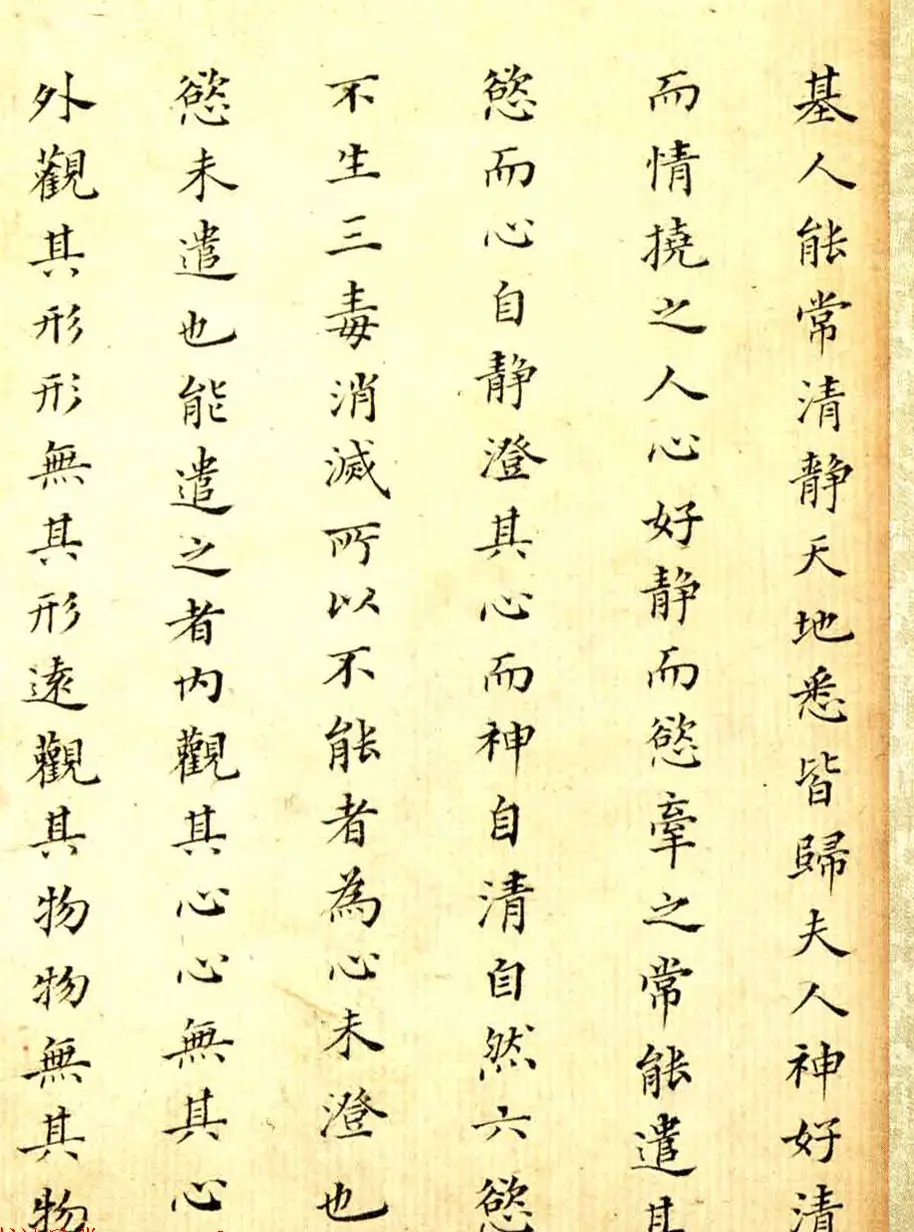 基人能常清静天地悉皆歸夫人神好清
而情撓之人心好静而慾牽之常能遣其
慾而心自静澄其心而神自清自然六慾
不生三毒消滅所以不能者為心未澄也
慾未遣也能遣之者内觀其心心無其心
外觀其形形無其形遠觀其物物無其物